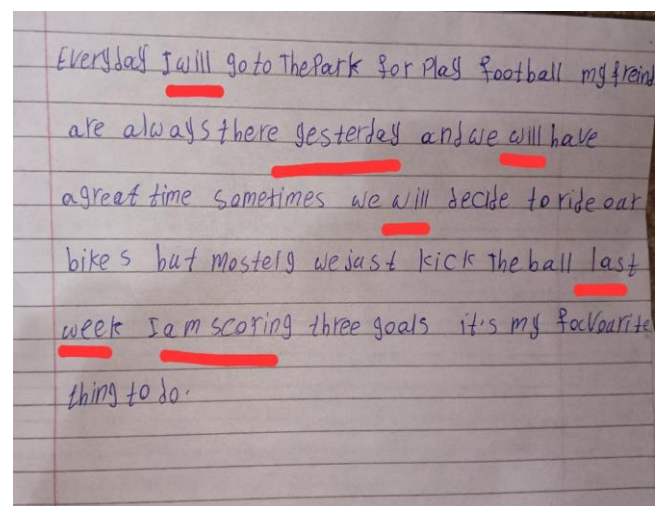 Everyday I will go to The Park for Play football my freind
are always there yesterday and we will have
a great time sometimes we will decide to ride our
bikes but mostely we just kick The ball last
week I am scoring three goals it's my focvourite
thing to do.